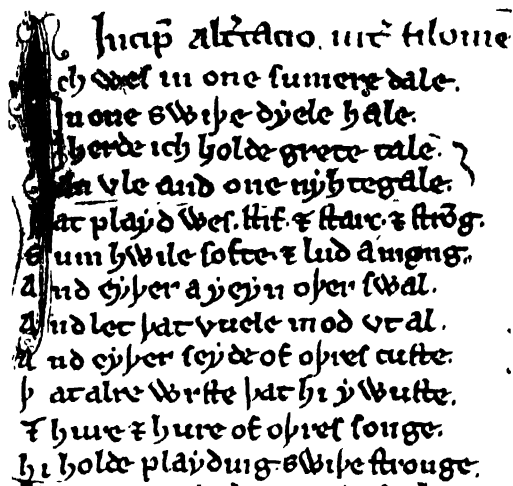 Incip̄ altercacio. int̉ filome
Ich wes in one sumere dale.
In one swiþe dẏele hale.
Iherde ich holde grete tale.
An vle and one nẏhtegale.
Þat playd wes. stif. ⁊ starc. ⁊ strōg.
Sum hwile softe. ⁊ lud among.
And eẏþer aẏeẏn oþer swal.
And let þat vuele mod vt al.
And eẏþer seẏde of oþres custe.
Þat alre wrste þat hi ẏwuste.
⁊ hure ⁊ hure of oþres songe.
hi holde playding swiþe stronge.